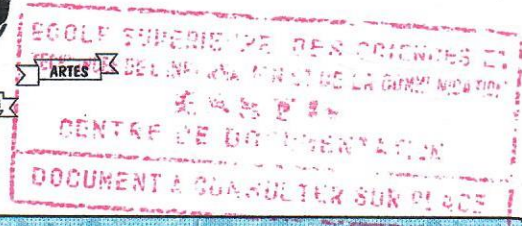 ECOLE SUPERIEURE DES SCIENCES ET
DE L'INFORMATION ET DE LA COMMUNICATION
ARTES
CENTRE DE DOCUMENTATION
DOCUMENT A CONSULTER SUR PLACE